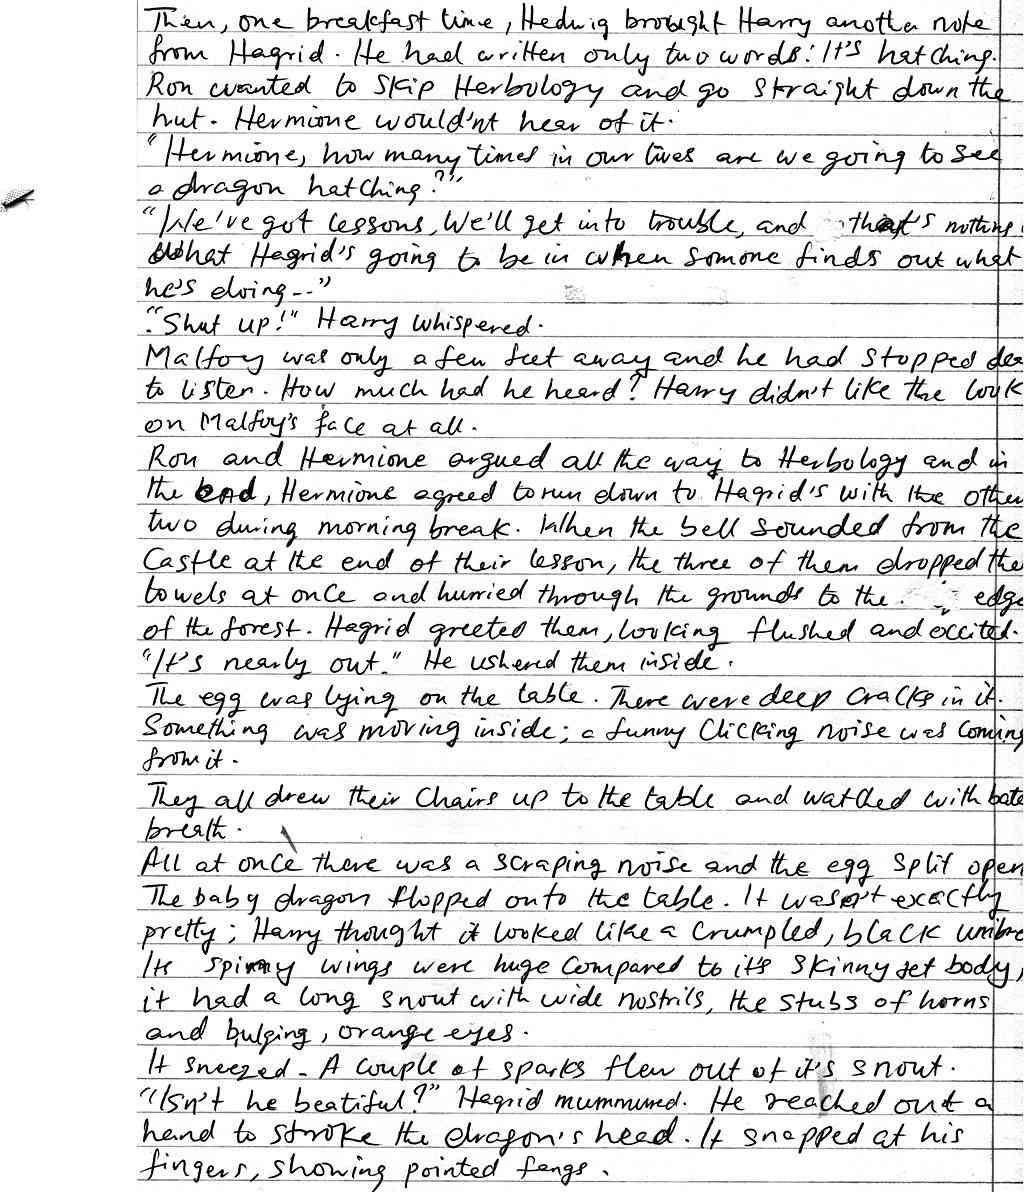 Then, one breakfast time, Hedwig brought Harry another note
from Hagrid. He had written only two words: It's hatching.
Ron wanted to skip Herbology and go straight down the
hut. Hermione would'nt hear of it.
"Hermione, how many times in our lives are we going to see
a dragon hatching?"
"We've got lessons, We'll get into trouble, and that's nothing
what Hagrid's going to be in when somone finds out what
he's doing--"
"Shut up!" Harry whispered.
Malfoy was only a few feet away and he had stopped dea
to listen. How much had he heard? Harry didn't like the look
on Malfoy's face at all.
Ron and Hermione argued all the way to Herbology and in
the end, Hermione agreed to run down to Hagrid's with the other
two during morning break. When the bell sounded from the
Castle at the end of their lesson, the three of them dropped the
towels at once and hurried through the grounds to the edge
of the forest. Hagrid greeted them, looking flushed and excited.
"It's nearly out." He ushered them inside.
The egg was lying on the table. There were deep cracks in it.
Something was moving inside; a funny clicking noise was coming
from it.
They all drew their chairs up to the table and watched with bate
breath.
All at once there was a scraping noise and the egg split open
The baby dragon flopped onto the table. It wasn't exactly
pretty; Harry thought it looked like a crumpled, black umbre
Its spinny wings were huge compared to it's skinny jet body,
it had a long snout with wide nostrils, the stubs of horns
and bulging, orange eyes.
It sneezed. A couple of sparks flew out of it's snout.
"Isn't he beatiful?" Hagrid mummured. He reached out a
hand to stroke the dragon's head. It snapped at his
fingers, showing pointed fangs.